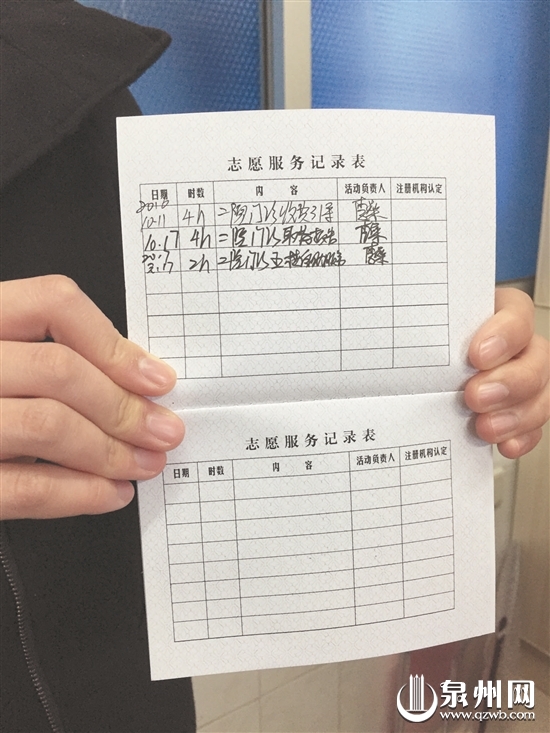 志愿服务记录表
日期 时数 内 容 活动负责人 注册机构认定
2016
10.11 4h 二院门诊收费引导
10.17 4h 二院门诊取报告
2h 二院门诊五楼
志愿服务记录表
日期 时数 内 容 活动负责人 注册机构认定
泉州网
www.qzwb.com